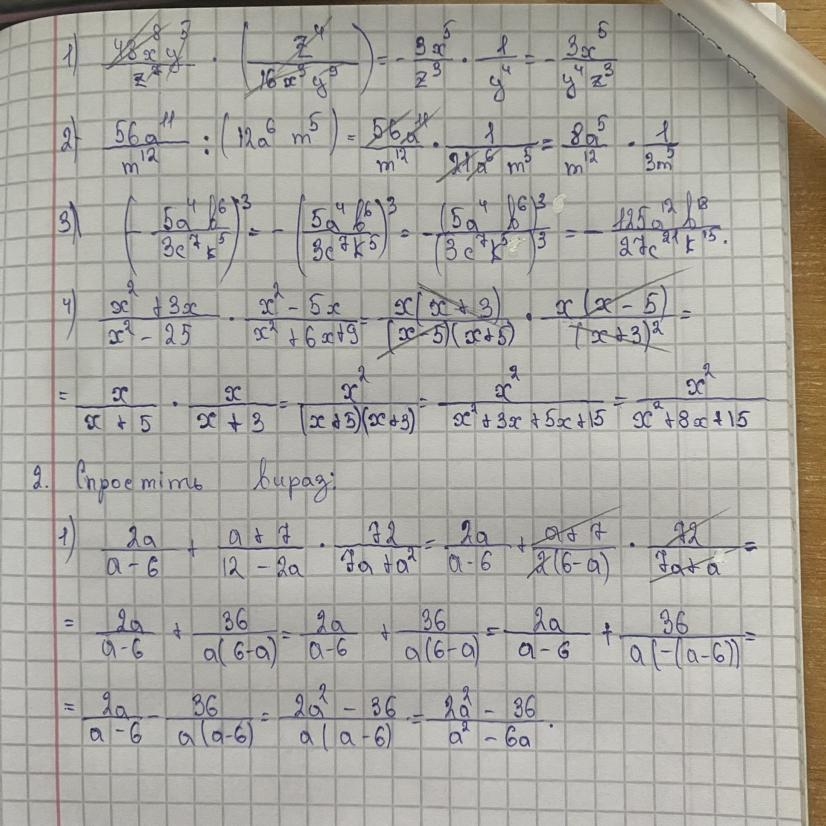 1) 48x⁸y⁵/z⁷ · (z⁴/16x³y⁹) = - 3x⁵/z³ · 1/y⁴ = - 3x⁵/y⁴z³
2) 56a¹¹/m¹² : (12a⁶ m⁵) = 56a¹¹/m¹² · 1/21a⁶ m⁵ = 8a⁵/m¹² · 1/3m⁵
3) (- 5a⁴ b⁶/3c⁷k⁵)³ = - (5a⁴ b⁶/3c⁷k⁵)³ = - (5a⁴ b⁶)³/(3c⁷k⁵)³ = - 125a¹²b¹⁸/27c²¹k¹⁵.
4) x² + 3x/x² - 25 · x² - 5x/x² + 6x + 9 = x(x + 3)/(x - 5)(x + 5) · x(x - 5)/(x + 3)² =
= x/x + 5 · x/x + 3 = x²/(x + 5)(x + 3) = x²/x² + 3x + 5x + 15 = x²/x² + 8x + 15
2. Спростіть вираз:
1) 2a/a - 6 + a + 7/12 - 2a · 72/7a + a² = 2a/a - 6 + a + 7/2(6 - a) · 72/7a + a =
= 2a/a - 6 + 36/a(6 - a) = 2a/a - 6 + 36/a(6 - a) = 2a/a - 6 + 36/a(-(a - 6)) =
= 2a/a - 6 - 36/a(a - 6) = 2a² - 36/a(a - 6) = 2a² - 36/a² - 6a.